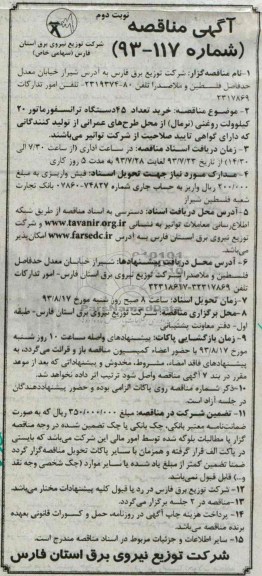 نوبت دوم
آگهی مناقصه
(شماره ۱۱۷-۹۳)
شرکت توزیع نیروی برق استان
فارس (سهامی خاص)
۱- نام مناقصه‌گزار: شرکت توزیع برق فارس به آدرس شیراز خیابان معدل
حدفاصل فلسطین و ملاصدرا تلفن ۸۰-۲۳۱۹۳۷۴ - تلفن امور تدارکات
۲۳۱۷۸۶۹
۲- موضوع مناقصه: خرید تعداد ۴۵دستگاه ترانسفورماتور ۲۰
کیلوولت روغنی (نرمال) از محل طرح‌های عمرانی از تولید کنندگانی
که دارای گواهی تایید صلاحیت از شرکت توانیر می‌باشند.
۳- زمان دریافت اسناد مناقصه: در ساعات اداری (از ساعت ۷/۳۰ الی
۱۴/۳۰) از تاریخ ۹۳/۷/۲۳ لغایت ۹۳/۷/۲۸ به مدت ۵ روز کاری
۴- مدارک مورد نیاز جهت تحویل اسناد: فیش واریزی به مبلغ
۲۰۰/۰۰۰ ریال واریز به حساب جاری شماره ۰۷۸۶۰۰۷۴۸۲۷ بانک تجارت
شعبه فلسطین شیراز
۵- آدرس محل دریافت اسناد: دسترسی به اسناد مناقصه از طریق شبکه
اطلاع‌رسانی معاملات توانیر به نشانی www.tavanir.org.ir و شرکت
توزیع نیروی برق استان فارس به آدرس www.farsedc.ir امکان‌پذیر
می‌باشد.
۶- آدرس محل دریافت پیشنهادها: شیراز خیابان معدل حدفاصل
فلسطین و ملاصدرا شرکت توزیع نیروی برق استان فارس- امور تدارکات
تلفن ۳۲۳۱۷۸۶۹-۳۲۳۱۸۶۱۷
۷- زمان تحویل اسناد: ساعت ۸ صبح روز شنبه مورخ ۹۳/۸/۱۷
۸- محل برگزاری مناقصه: شرکت توزیع نیروی برق استان فارس- طبقه
اول- دفتر معاونت پشتیبانی
۹- زمان بازگشایی پاکات: پیشنهادهای واصله ساعت ۱۰ روز شنبه
مورخ ۹۳/۸/۱۷ با حضور اعضاء کمیسیون مناقصه باز و قرائت می‌گردد، به
پیشنهادهای فاقد امضاء، مشروط، مخدوش و پیشنهاداتی که بعد از موعد
مقرر در بند ۷ آگهی مناقصه واصل شود ترتیب اثر داده نخواهد شد.
۱۰- ذکر شماره مناقصه روی پاکات الزامی بوده و حضور پیشنهاددهندگان
در جلسه آزاد است.
۱۱- تضمین شرکت در مناقصه: مبلغ ۳۵۰/۰۰۰/۰۰۰ ریال که به صورت
ضمانت‌نامه معتبر بانکی، چک بانکی یا چک تضمین شده در وجه مناقصه
گزار یا مطالبات بلوکه شده توسط امور مالی این شرکت می‌باشد که بایستی
در پاکت الف قرار گرفته و همزمان با سایر پاکات تحویل مناقصه‌گزار گردد
ضمنا تضمین کمتر از مبلغ یاد شده یا سایر موارد (چک شخصی وجه نقد
و..) قابل قبول نمی‌باشد.
۱۲- شرکت توزیع برق فارس در رد یا قبول کلیه پیشنهادات مختار می‌باشد.
۱۳- مناقصه در ۲ جلسه برگزار می‌گردد.
۱۴- پرداخت هزینه چاپ آگهی در روزنامه، حمل و کسورات قانونی بعهده
برنده مناقصه می‌باشد.
۱۵- سایر اطلاعات و جزئیات مربوط در اسناد مناقصه مندرج است.
شرکت توزیع نیروی برق استان فارس